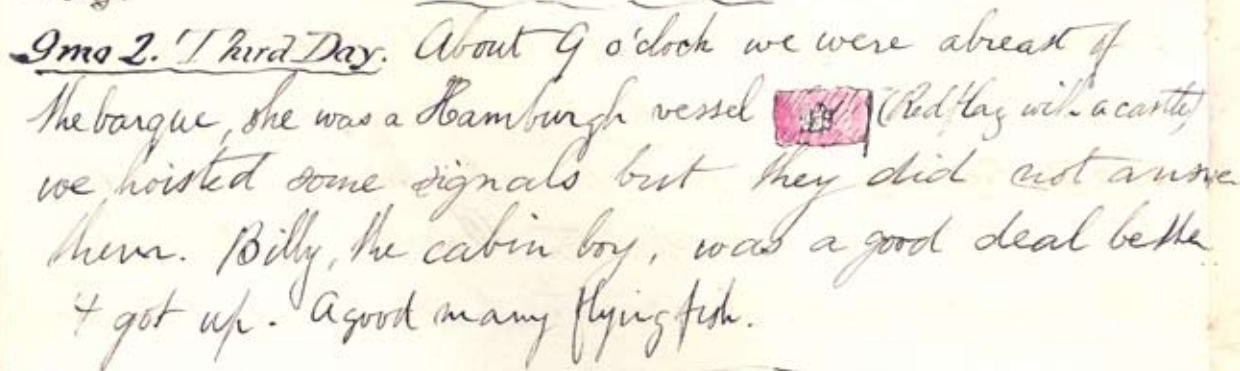 9mo 2. Third Day. About 9 o'clock we were abreast of
the barque, she was a Hamburgh vessel (Red flag with a castle)
we hoisted some signals but they did not answer
them. Billy, the cabin boy, was a good deal better
& got up. A good many flying fish.